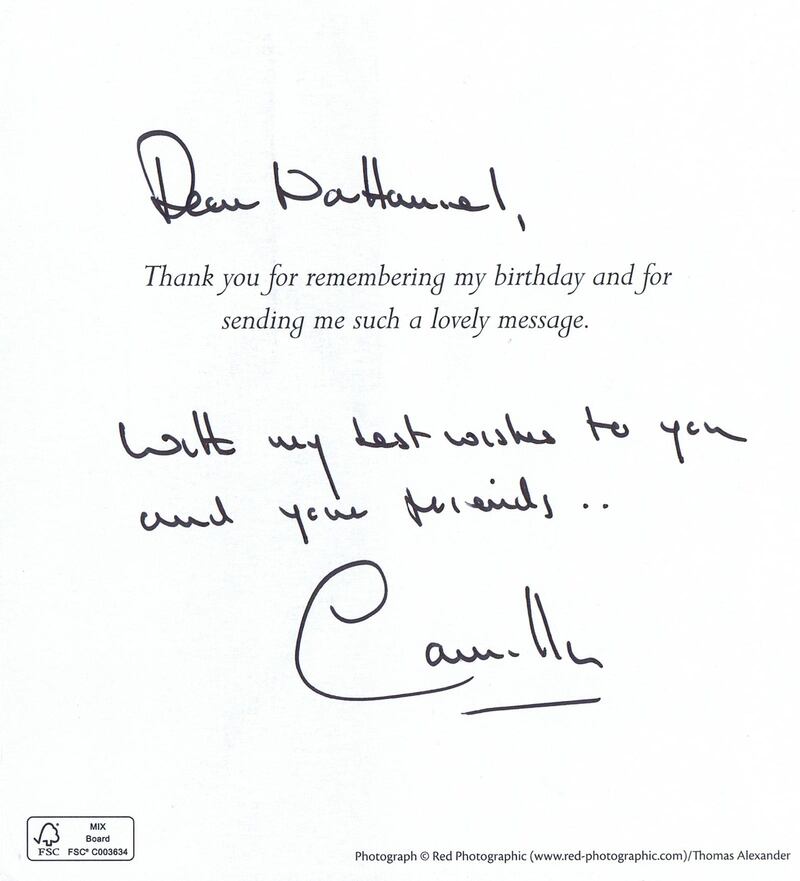 Dear Nathaniel,
Thank you for remembering my birthday and for
sending me such a lovely message.
With my best wishes to you
and your friends..
Camilla
FSC® MIX
Board
FSC® C003634
Photograph © Red Photographic (www.red-photographic.com)/Thomas Alexander